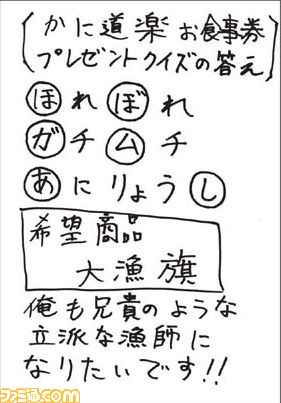 かに道楽お食事券
プレゼントクイズの答え
ほれぼれ
ガチムチ
あにりょうし
希望商品
大漁旗
俺も兄貴のような
立派な漁師に
なりたいです!!
ファミ通.com